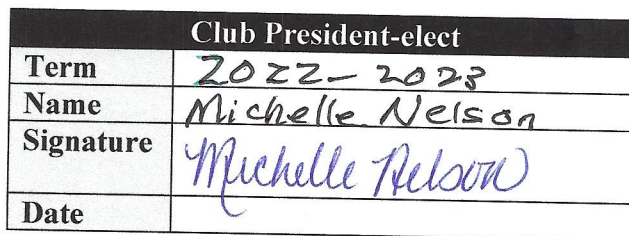 Club President-elect
Term 2022-2023
Name Michelle Nelson
Signature Michelle Nelson
Date